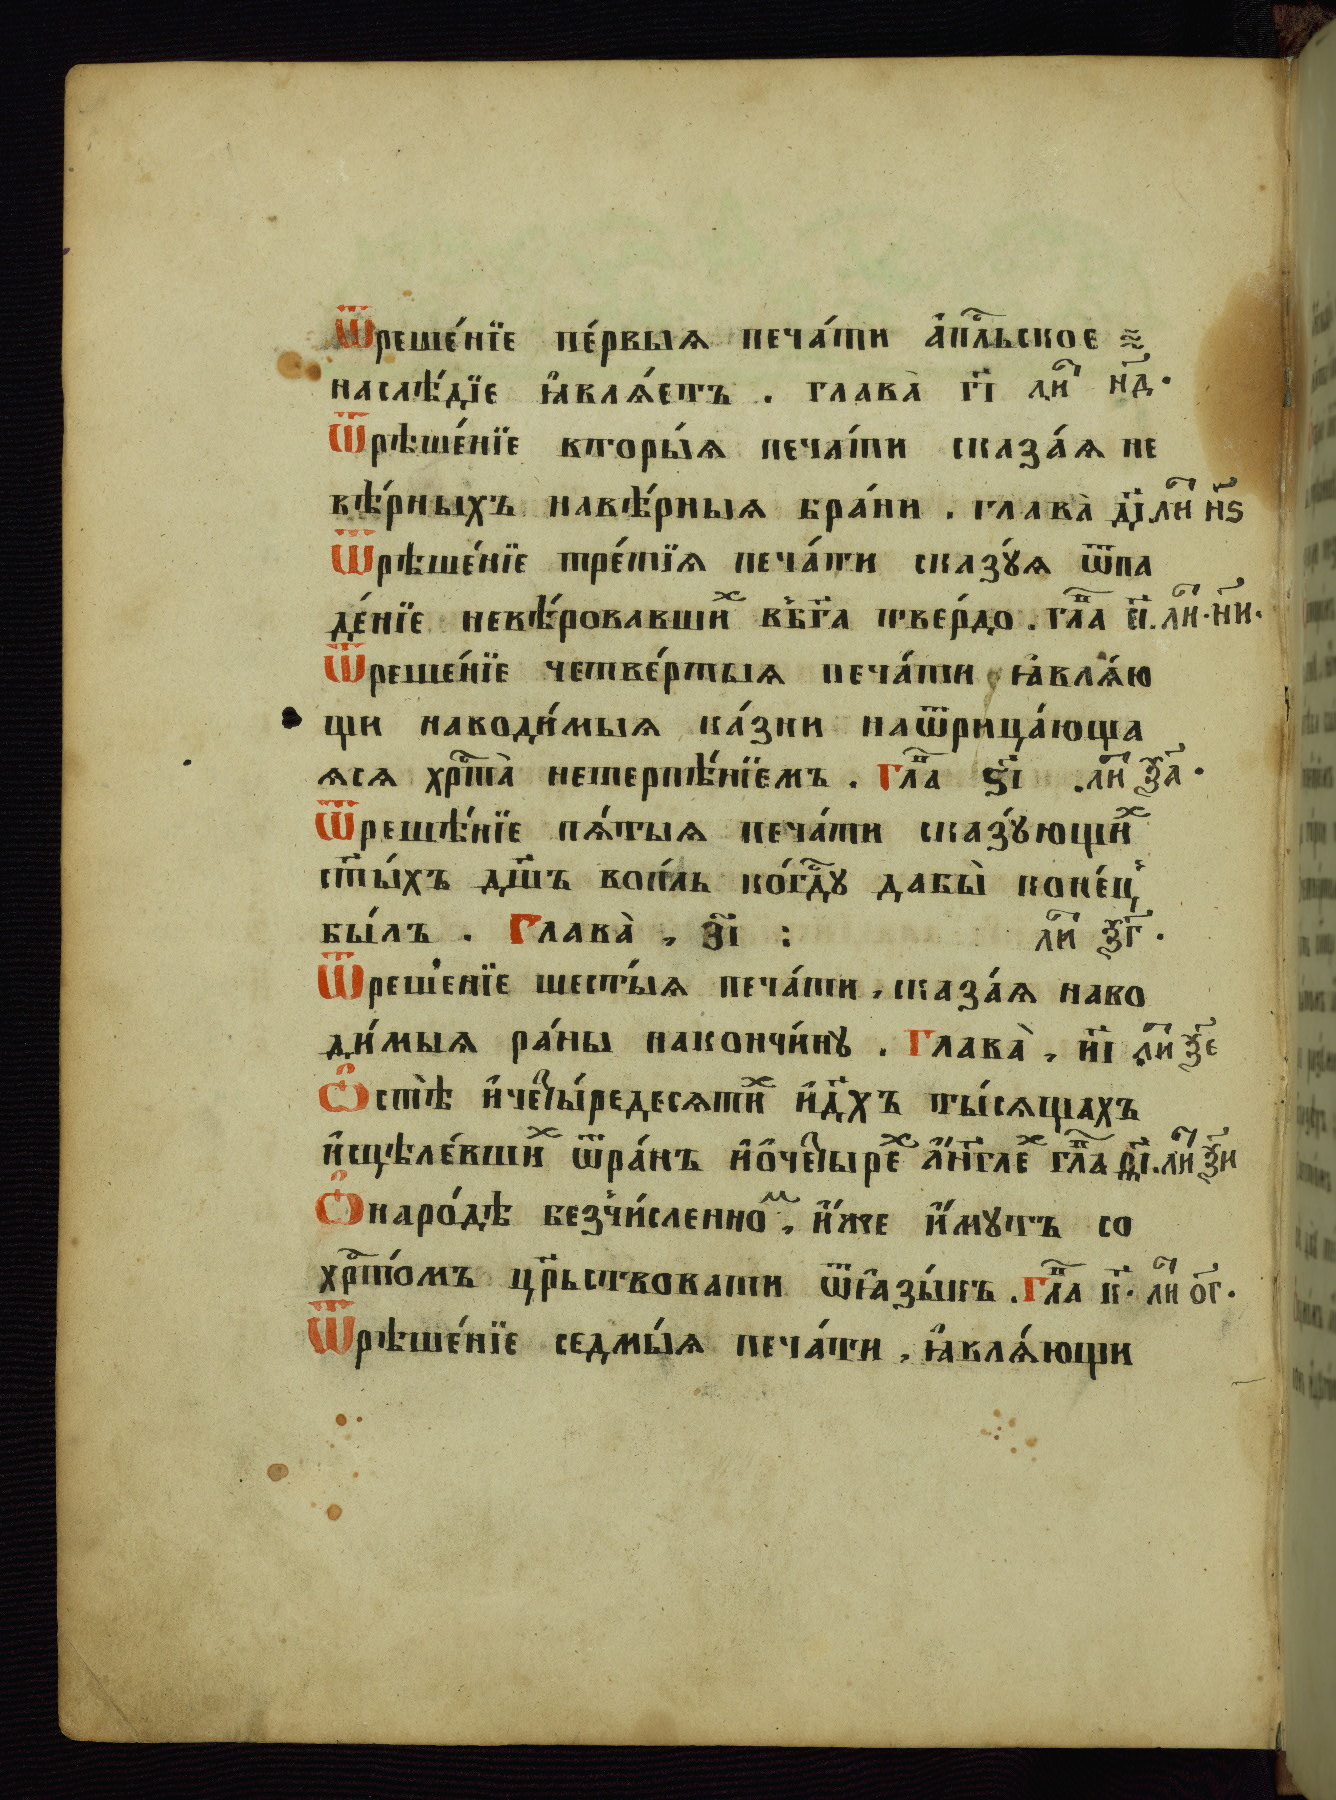 Ѿреше́нїе пе́рвыѧ печа́ти а҆пⷭ҇льское ≈
наслѣ́дїе ꙗ҆влѧ́етъ . глава̀ гі҃ лиⷭ҇ нд҃ .
Ѿрѣше́нїе вторы́ѧ печа́ти сказа́ѧ не
вѣ́рныхъ навѣ́рныѧ бра́ни . глава̀ ді҃ . лиⷭ҇ нѕ҃
Ѿрѣше́нїе тре́тїѧ печа́ти сказꙋ́ѧ ѿпа
де́нїе невѣ́ровавшиⷯ вбг҃а тве́рдо . глⷡ҇а еі҃ . лиⷭ҇ . ни҃ .
Ѿреше́нїе четве́ртыѧ печа́ти ꙗ҆влѧ́ю
щи наводи́мыѧ ка́зни наѿрица́юща
ѧсѧ хрⷭ҇та̀ нетерпѣ́нїемъ . глⷡ҇а ѕі҃ . лиⷭ҇ ѯа҃ .
Ѿрешѣ́нїе пѧ́тыѧ печа́ти сказꙋ́ющиⷯ
ст҃ы́хъ дш҃ъ во́пль ко́гдꙋ дабы̀ коне́цъ
бы́лъ . Глава̀ , зі҃ : лиⷭ҇ ѯг҃ .
Ѿреше́нїе шесты́ѧ печа́ти , сказа́ѧ наво
ди́мыѧ ра́ны накончи́нꙋ . Глава̀ , иі҃ лиⷭ҇ ѯе҃
Ѡ҆стѣ̀ и҆четы́редесѧтиⷯ и҆д҃хъ ты́сѧщахъ
и҆сцѣле́вшиⷯ ѿра́нъ и҆ѻ҆четыреⷯ а҆́нг҃леⷯ глⷡ҇а ѳі҃ . лиⷭ҇ ѯи҃
Ѡ҆наро́дѣ безчи́сленноⷨ , и҆̀же и҆́мꙋтъ со
хрⷭ҇то́мъ црⷭ҇ьствовати ѿꙗ҆зы́къ . Глⷡ҇а к҃ . лиⷭ҇ ог҃ .
Ѿрѣше́нїе седмы́ѧ печа́ти , ꙗ҆влѧ́ющи